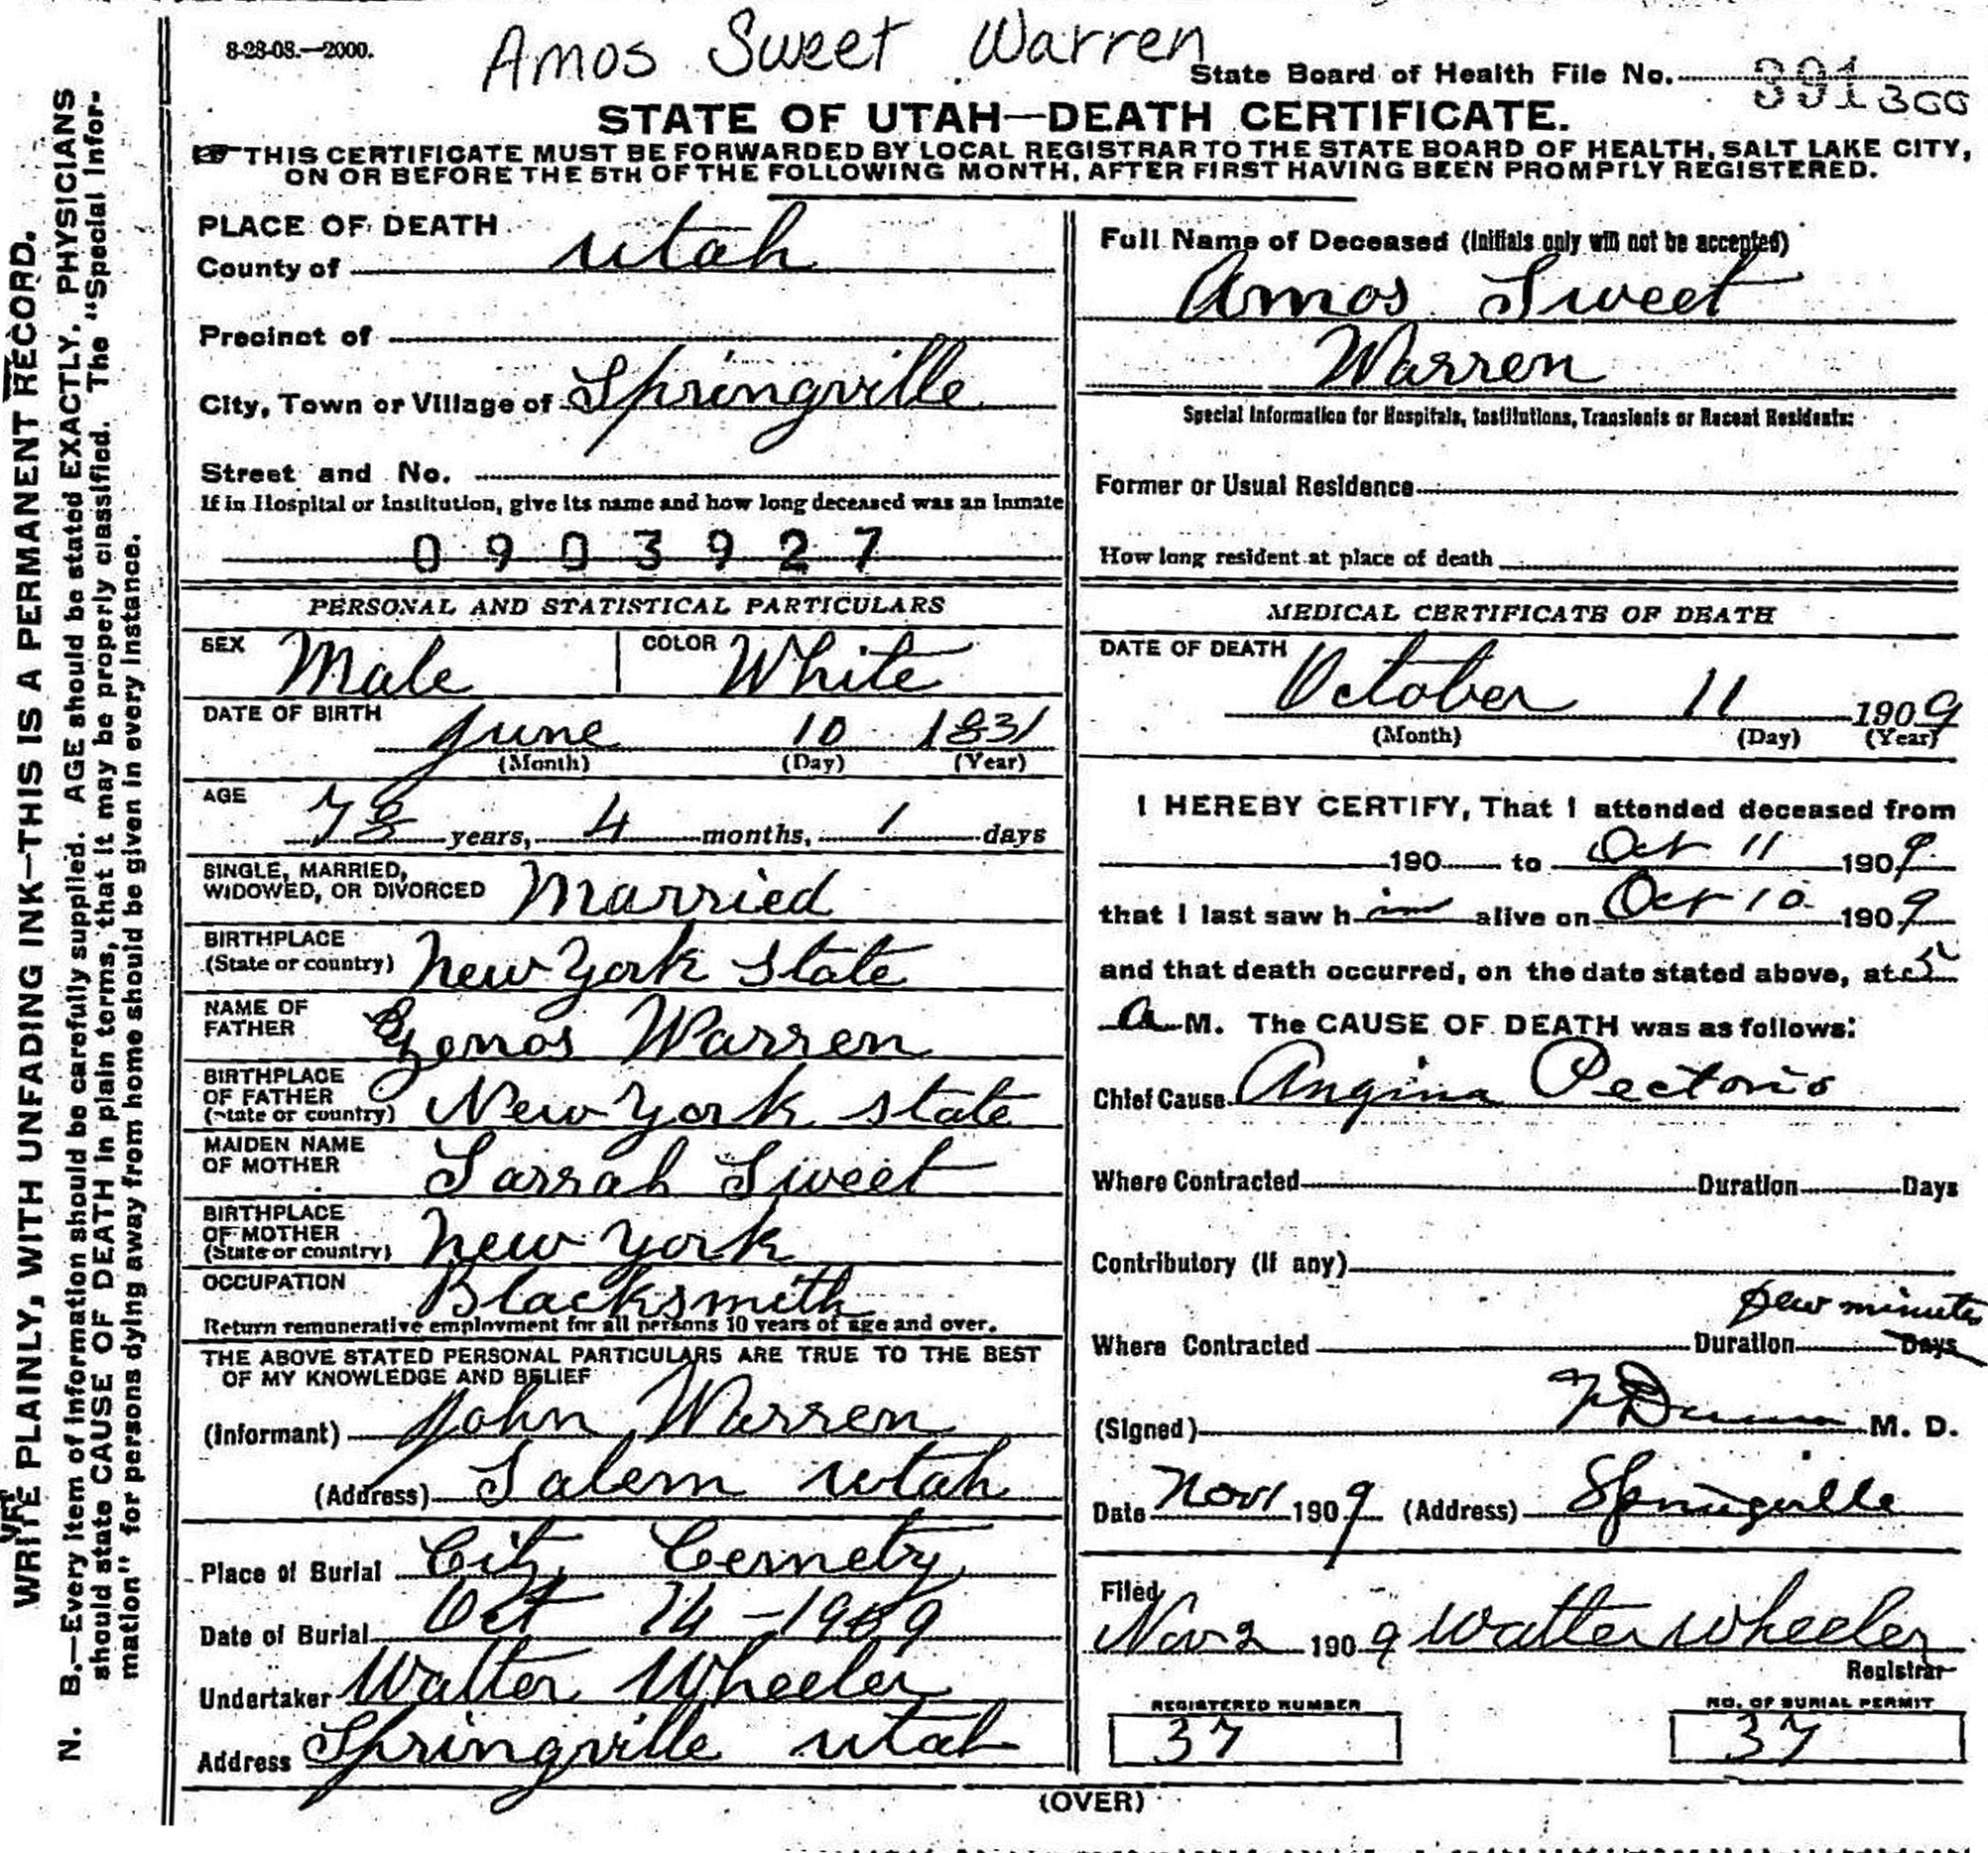 8-28-08.—2000.
Amos Sweet Warren
State Board of Health File No. 391 300
STATE OF UTAH—DEATH CERTIFICATE.
THIS CERTIFICATE MUST BE FORWARDED BY LOCAL REGISTRAR TO THE STATE BOARD OF HEALTH, SALT LAKE CITY,
ON OR BEFORE THE 5TH OF THE FOLLOWING MONTH, AFTER FIRST HAVING BEEN PROMPTLY REGISTERED.
WRITE PLAINLY, WITH UNFADING INK—THIS IS A PERMANENT RECORD.
N. B.—Every item of information should be carefully supplied. AGE should be stated EXACTLY. PHYSICIANS
should state CAUSE OF DEATH in plain terms, that it may be properly classified. The "Special Infor-
mation" for persons dying away from home should be given in every instance.
PLACE OF DEATH
County of Utah
Precinct of
City, Town or Village of Springville
Street and No.
If in Hospital or Institution, give its name and how long deceased was an inmate
0903927
PERSONAL AND STATISTICAL PARTICULARS
SEX Male COLOR White
DATE OF BIRTH
June 10 1831
(Month) (Day) (Year)
AGE
78 years, 4 months, 1 days
SINGLE, MARRIED,
WIDOWED, OR DIVORCED Married
BIRTHPLACE
(State or country) New York State
NAME OF
FATHER Zenos Warren
BIRTHPLACE
OF FATHER
(State or country) New York state
MAIDEN NAME
OF MOTHER Sarrah Sweet
BIRTHPLACE
OF MOTHER
(State or country) New York
OCCUPATION Blacksmith
Return remunerative employment for all persons 10 years of age and over.
THE ABOVE STATED PERSONAL PARTICULARS ARE TRUE TO THE BEST
OF MY KNOWLEDGE AND BELIEF
(Informant) John Warren
(Address) Salem Utah
Place of Burial City Cemety
Date of Burial Oct 14 - 1909
Undertaker Walter Wheeler
Address Springville Utah
Full Name of Deceased (Initials only will not be accepted)
Amos Sweet
Warren
Special Information for Hospitals, Institutions, Transients or Recent Residents:
Former or Usual Residence
How long resident at place of death
MEDICAL CERTIFICATE OF DEATH
DATE OF DEATH
October 11 1909
(Month) (Day) (Year)
I HEREBY CERTIFY, That I attended deceased from
190 to Oct 11 1909
that I last saw him alive on Oct 10 1909
and that death occurred, on the date stated above, at 5
a M. The CAUSE OF DEATH was as follows:
Chief Cause Angina Pectoris
Where Contracted Duration Days
Contributory (If any)
few minutes
Where Contracted Duration Days
(Signed) Dunn M. D.
Date Nov 1 1909 (Address) Springville
Filed
Nov 2 1909 Walter Wheeler
Registrar
REGISTERED NUMBER
37
NO. OF BURIAL PERMIT
37
(OVER)